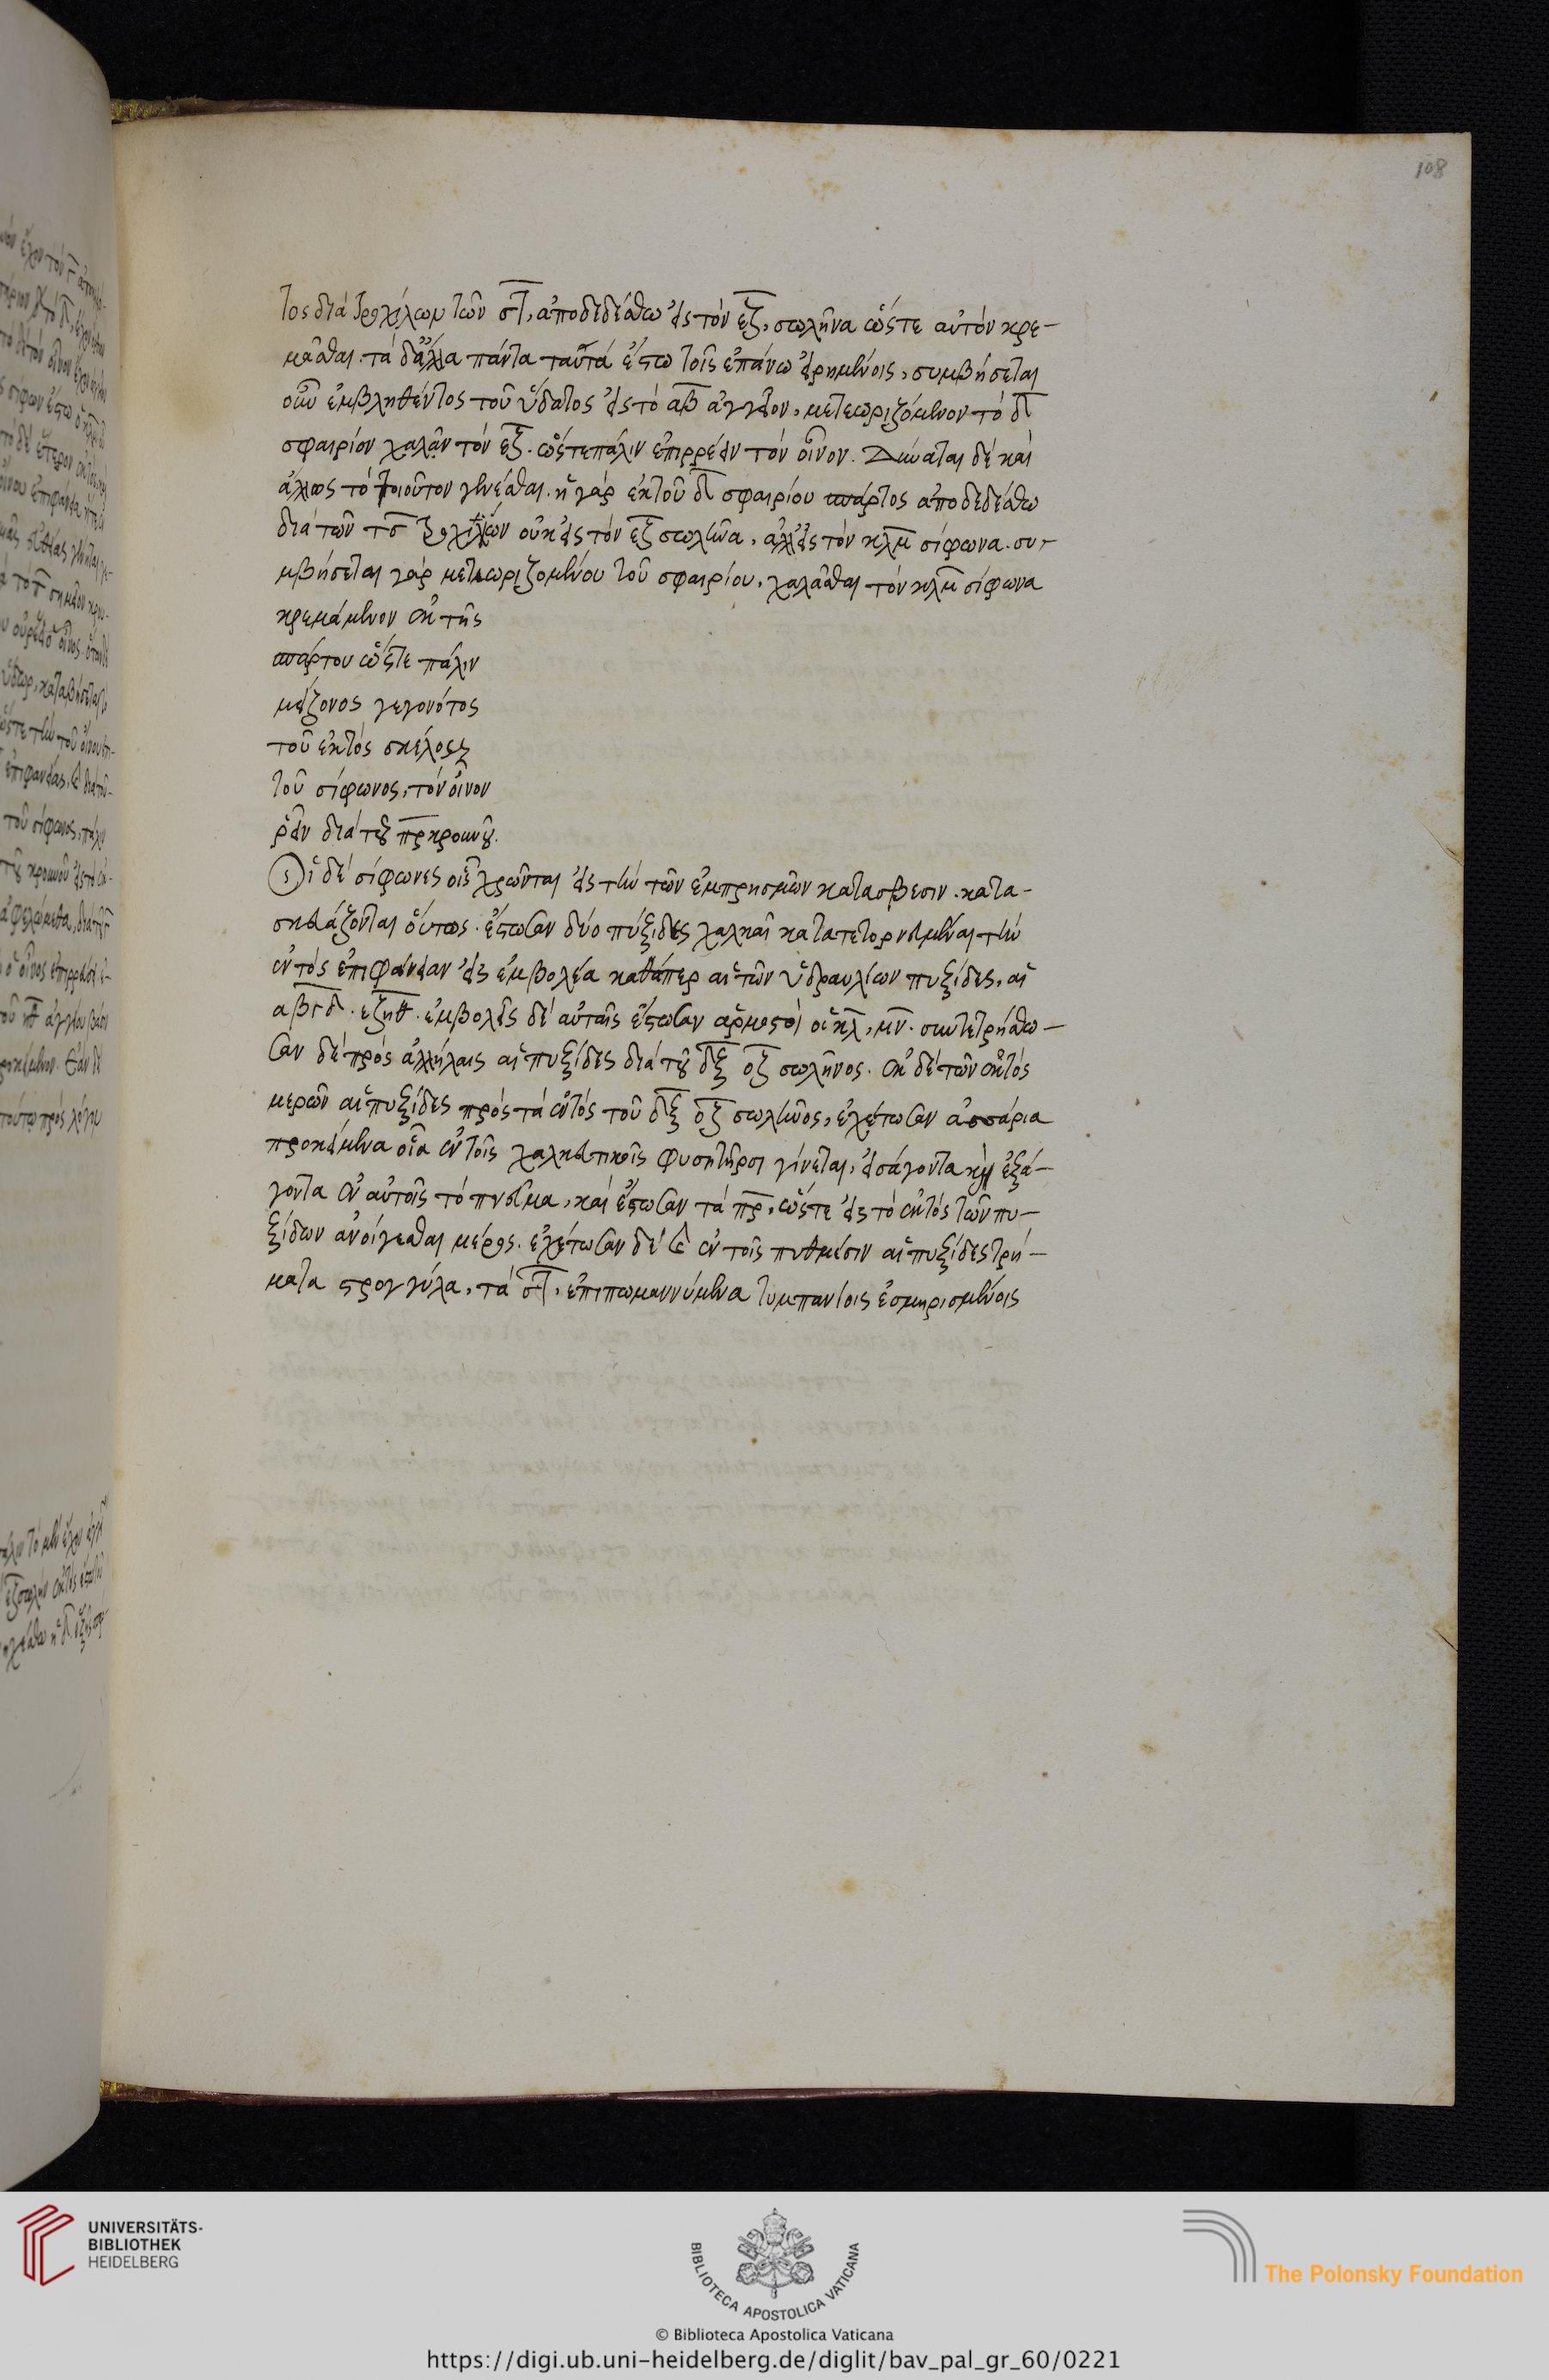 108
τος διὰ τροχίλωμ τῶν σ͞τ, ἀποδεδέσθω εἰς τὸν ε͞ζ, σωλῆνα ὥστε αὐτὸν κρε-
μᾶσθαι. τὰ δ' ἄλλα πάντα ταὐτὰ ἔστω τοῖς ἐπάνω εἰρημένοις, συμβήσεται
οὖν ἐμβληθέντος τοῦ ὕδατος εἰς τὸ α͞β ἀγγεῖον, μετεωριζόμενον τὸ δ͞
σφαιρίον χαλᾶν τὸν ε͞ζ. ὥστε πάλιν ἐπιρρέειν τὸν οἶνον. Δύναται δὲ καὶ
ἄλλως τὸ τοιοῦτον γενέσθαι. ἡ γὰρ ἐκ τοῦ δ͞ σφαιρίου σπάρτος ἀποδεδέσθω
διὰ τῶν τ͞σ τροχίλων οὐκ εἰς τὸν ε͞ζ σωλῆνα, ἀλλ' εἰς τὸν κ͞λ͞μ σίφωνα. συ-
μβήσεται γὰρ μετεωριζομένου τοῦ σφαιρίου, χαλᾶσθαι τὸν κ͞λ͞μ σίφωνα
κρεμάμενον ἐκ τῆς
σπάρτου ὥστε πάλιν
μείζονος γεγονότος
τοῦ ἐκτὸς σκέλους
τοῦ σίφωνος, τὸν οἶνον
ῥεῖν διὰ τοῦ π͞ρ κρουνοῦ.
ἱ δὲ σίφωνες οἷς χρῶνται εἰς τὴν τῶν ἐμπρησμῶν κατασβεσιν. κατα-
σκευάζονται οὕτως. ἔστωσαν δύο πύξιδες χαλκαῖ κατατετορνευμέναι τὴν
ἐντὸς ἐπιφάνειαν εἰς ἐμβολέα καθάπερ αἱ τῶν ὑδραυλίων πυξίδες, αἱ
α͞β͞γ͞δ. ε͞ζ͞η͞θ. ἐμβολεῖς δὲ αὐταῖς ἔστωσαν ἁρμοστοὶ οἱ κ͞λ, μ͞ν. συντετρήσθω-
σαν δὲ πρὸς ἀλλήλαις αἱ πυξίδες διὰ τοῦ δ͞ξ ο͞ξ σωλῆνος. ἐκ δὲ τῶν ἐκτὸς
μερῶν αἱ πυξίδες πρὸς τὰ ἐντὸς τοῦ δ͞ξ ο͞ξ σωλῆνος, ἐχέτωσαν ἀσσάρια
προκείμενα οἷα ἐν τοῖς χαλκευτικοῖς φυσητῆρσι γίνεται, εἰσάγοντα καὶ ἐξά-
γοντα ἐν αὐτοῖς τὸ πνεῦμα, καὶ ἔστωσαν τὰ π͞ρ, ὥστε εἰς τὸ ἐκτὸς τῶν πυ-
ξίδων ἀνοίγεσθαι μέρος. ἐχέτωσαν δὲ καὶ ἐν τοῖς πυθμέσιν αἱ πυξίδες τρή-
ματα στρογγύλα, τὰ σ͞τ, ἐπιπωμαννύμενα τυμπανίοις ἐσμηρισμένοις
UNIVERSITÄTS-
BIBLIOTHEK
HEIDELBERG
BIBLIOTECA APOSTOLICA VATICANA
The Polonsky Foundation
© Biblioteca Apostolica Vaticana
https://digi.ub.uni-heidelberg.de/diglit/bav_pal_gr_60/0221